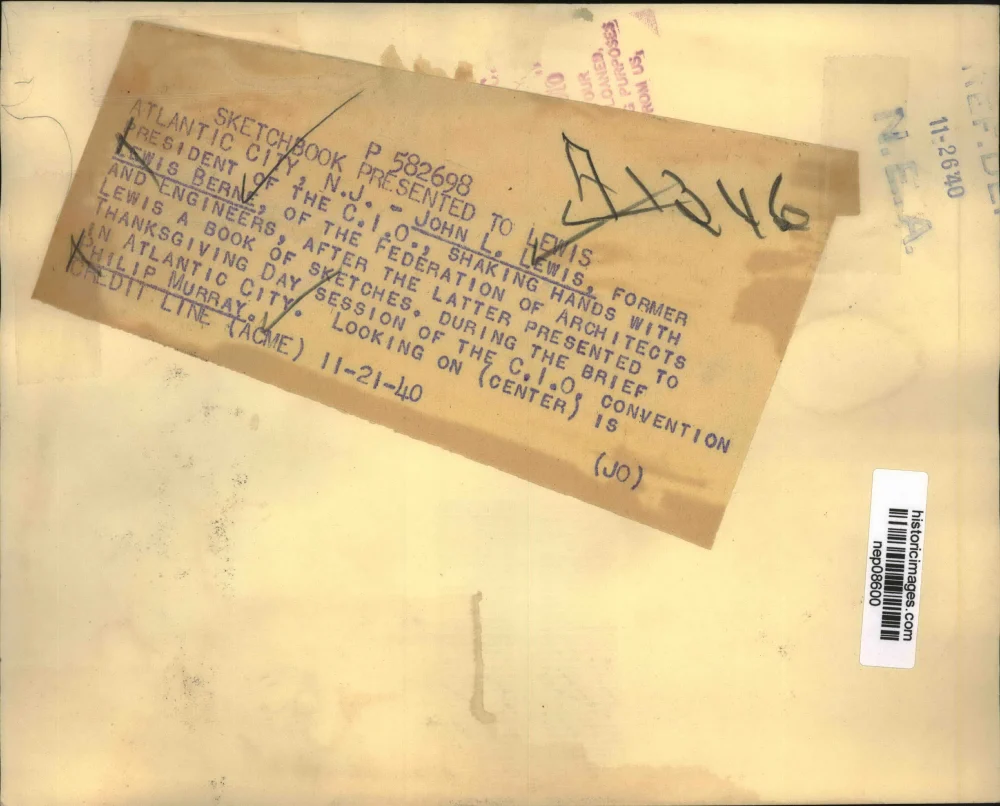 P 582698
SKETCHBOOK PRESENTED TO LEWIS
ATLANTIC CITY, N.J. - JOHN L. LEWIS, FORMER
PRESIDENT OF THE C.I.O., SHAKING HANDS WITH
LEWIS BERNE, OF THE FEDERATION OF ARCHITECTS
AND ENGINEERS, AFTER THE LATTER PRESENTED TO
LEWIS A BOOK OF SKETCHES. DURING THE BRIEF
THANKSGIVING DAY SESSION OF THE C.I.O. CONVENTION
IN ATLANTIC CITY. LOOKING ON (CENTER) IS
PHILIP MURRAY.
CREDIT LINE (ACME) 11-21-40 (JO)
PURPOSES
FROM US,
N.E.A.
11-26'40
historicimages.com
nep08600